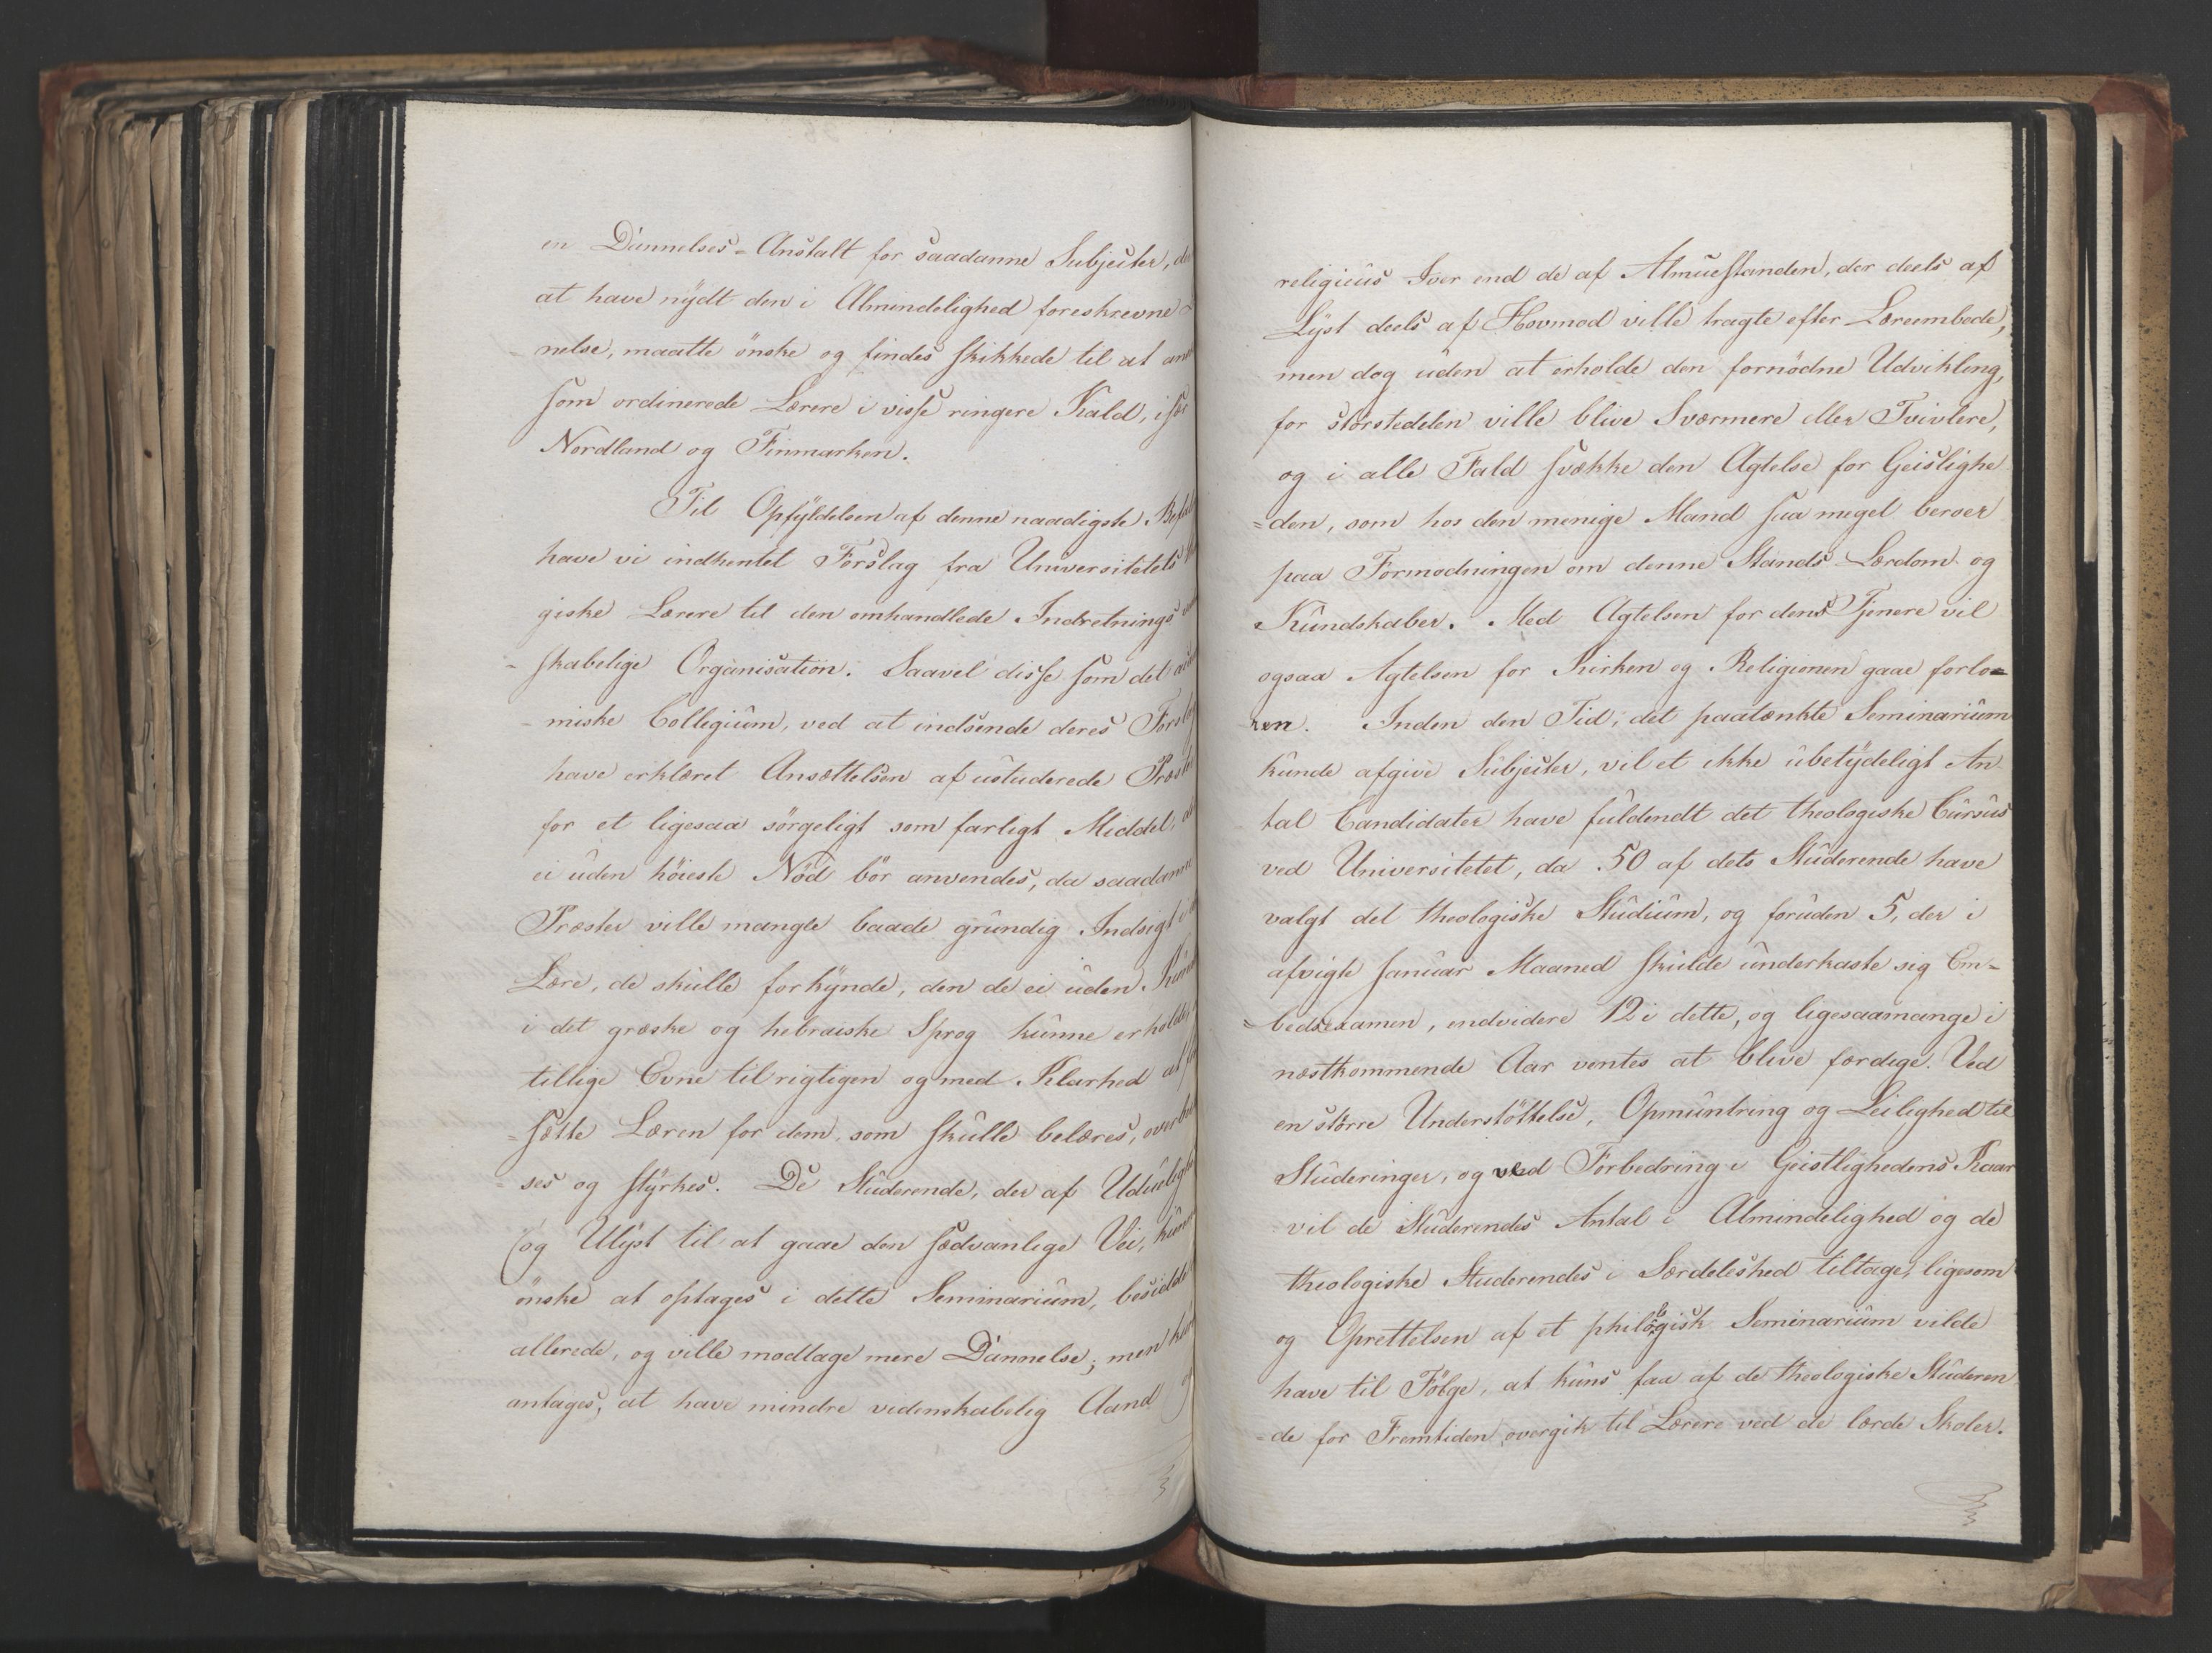 en Dannelses-Anstalt for saadanne Subjecter, der
at have nydt den i Almindelighed foreskrevne
nelse, maatte ønske og findes skikkede til at
som ordinerede Lærere i visse ringere Kald, især
Nordland og Finmarken.
Til Opfyldelsen af denne naadigste
have vi indhentet Forslag fra Universitetets
giske Lærere til den omhandlede Indretnings
skabelige Organisation. Saavel disse som det
miske Collegium, ved at indsende deres Forslag
have erklæret Ansættelsen af ustuderede Præster
for et ligesaa sørgeligt som farligt Middel,
ei uden høieste Nød bør anvendes, da saadanne
Præster ville mangle baade grundig Indsigt
Lære, de skulle forkynde, den de ei uden
i det græske og hebraiske Sprog kunne erholde
tillige Evne til rigtigen og med Klarhed at
=sætte Læren for dem, som skulle belæres,
=ses og styrkes. De Studerende, der af
og Ulyst til at gaae den sædvanlige Vei,
ønske at optages i dette Seminarium, besidde
allerede, og ville modtage mere Dannelse; men
antages, at have mindre videnskabelig Aand
religieus Iver end de af Almuestanden, der deels af
Lyst deels af Hovmod ville tragte efter Læreembede,
men dog uden at erholde den fornødne Udvikling,
for størstedelen ville blive Sværmere eller Tvivlere,
og i alle Fald svække den Agtelse for Geislighe
=den, som hos den menige Mand saa meget beroer
paa Formodningen om denne Stands Lærdom og
Kundskaber. Med Agtelsen for dens Tjenere vil
ogsaa Agtelsen for Kirken og Religionen gaae forlo=
ren. Inden den Tid, det paatænkte Seminarium
kunde afgive Subjecter, vil et ikke ubetydeligt An
tal Candidater have fuldendt det theologiske Cursus
ved Universitetet, da 50 af dets Studerende have
valgt det theologiske Studium, og foruden 5, der i
afvigte Januar Maaned skulde underkaste sig Em=
=bedsexamen, endvidere 12 i dette, og ligesaamange i
næstkommende Aar ventes at blive færdige. Ved
en større Understøttelse, Opmuntring og Leilighed til
Studeringer, og ved Forbedring i Geistlighedens Kaar
vil de Studerendes Antal i Almindelighed og de
theologiske Studerendes i Særdeleshed tiltage, ligesom
og Oprettelsen af et philologisk Seminarium vilde
have til Følge, at kuns faa af de theologiske Studeren
=de for Fremtiden overgik til Lærere ved de lærde Skoler.